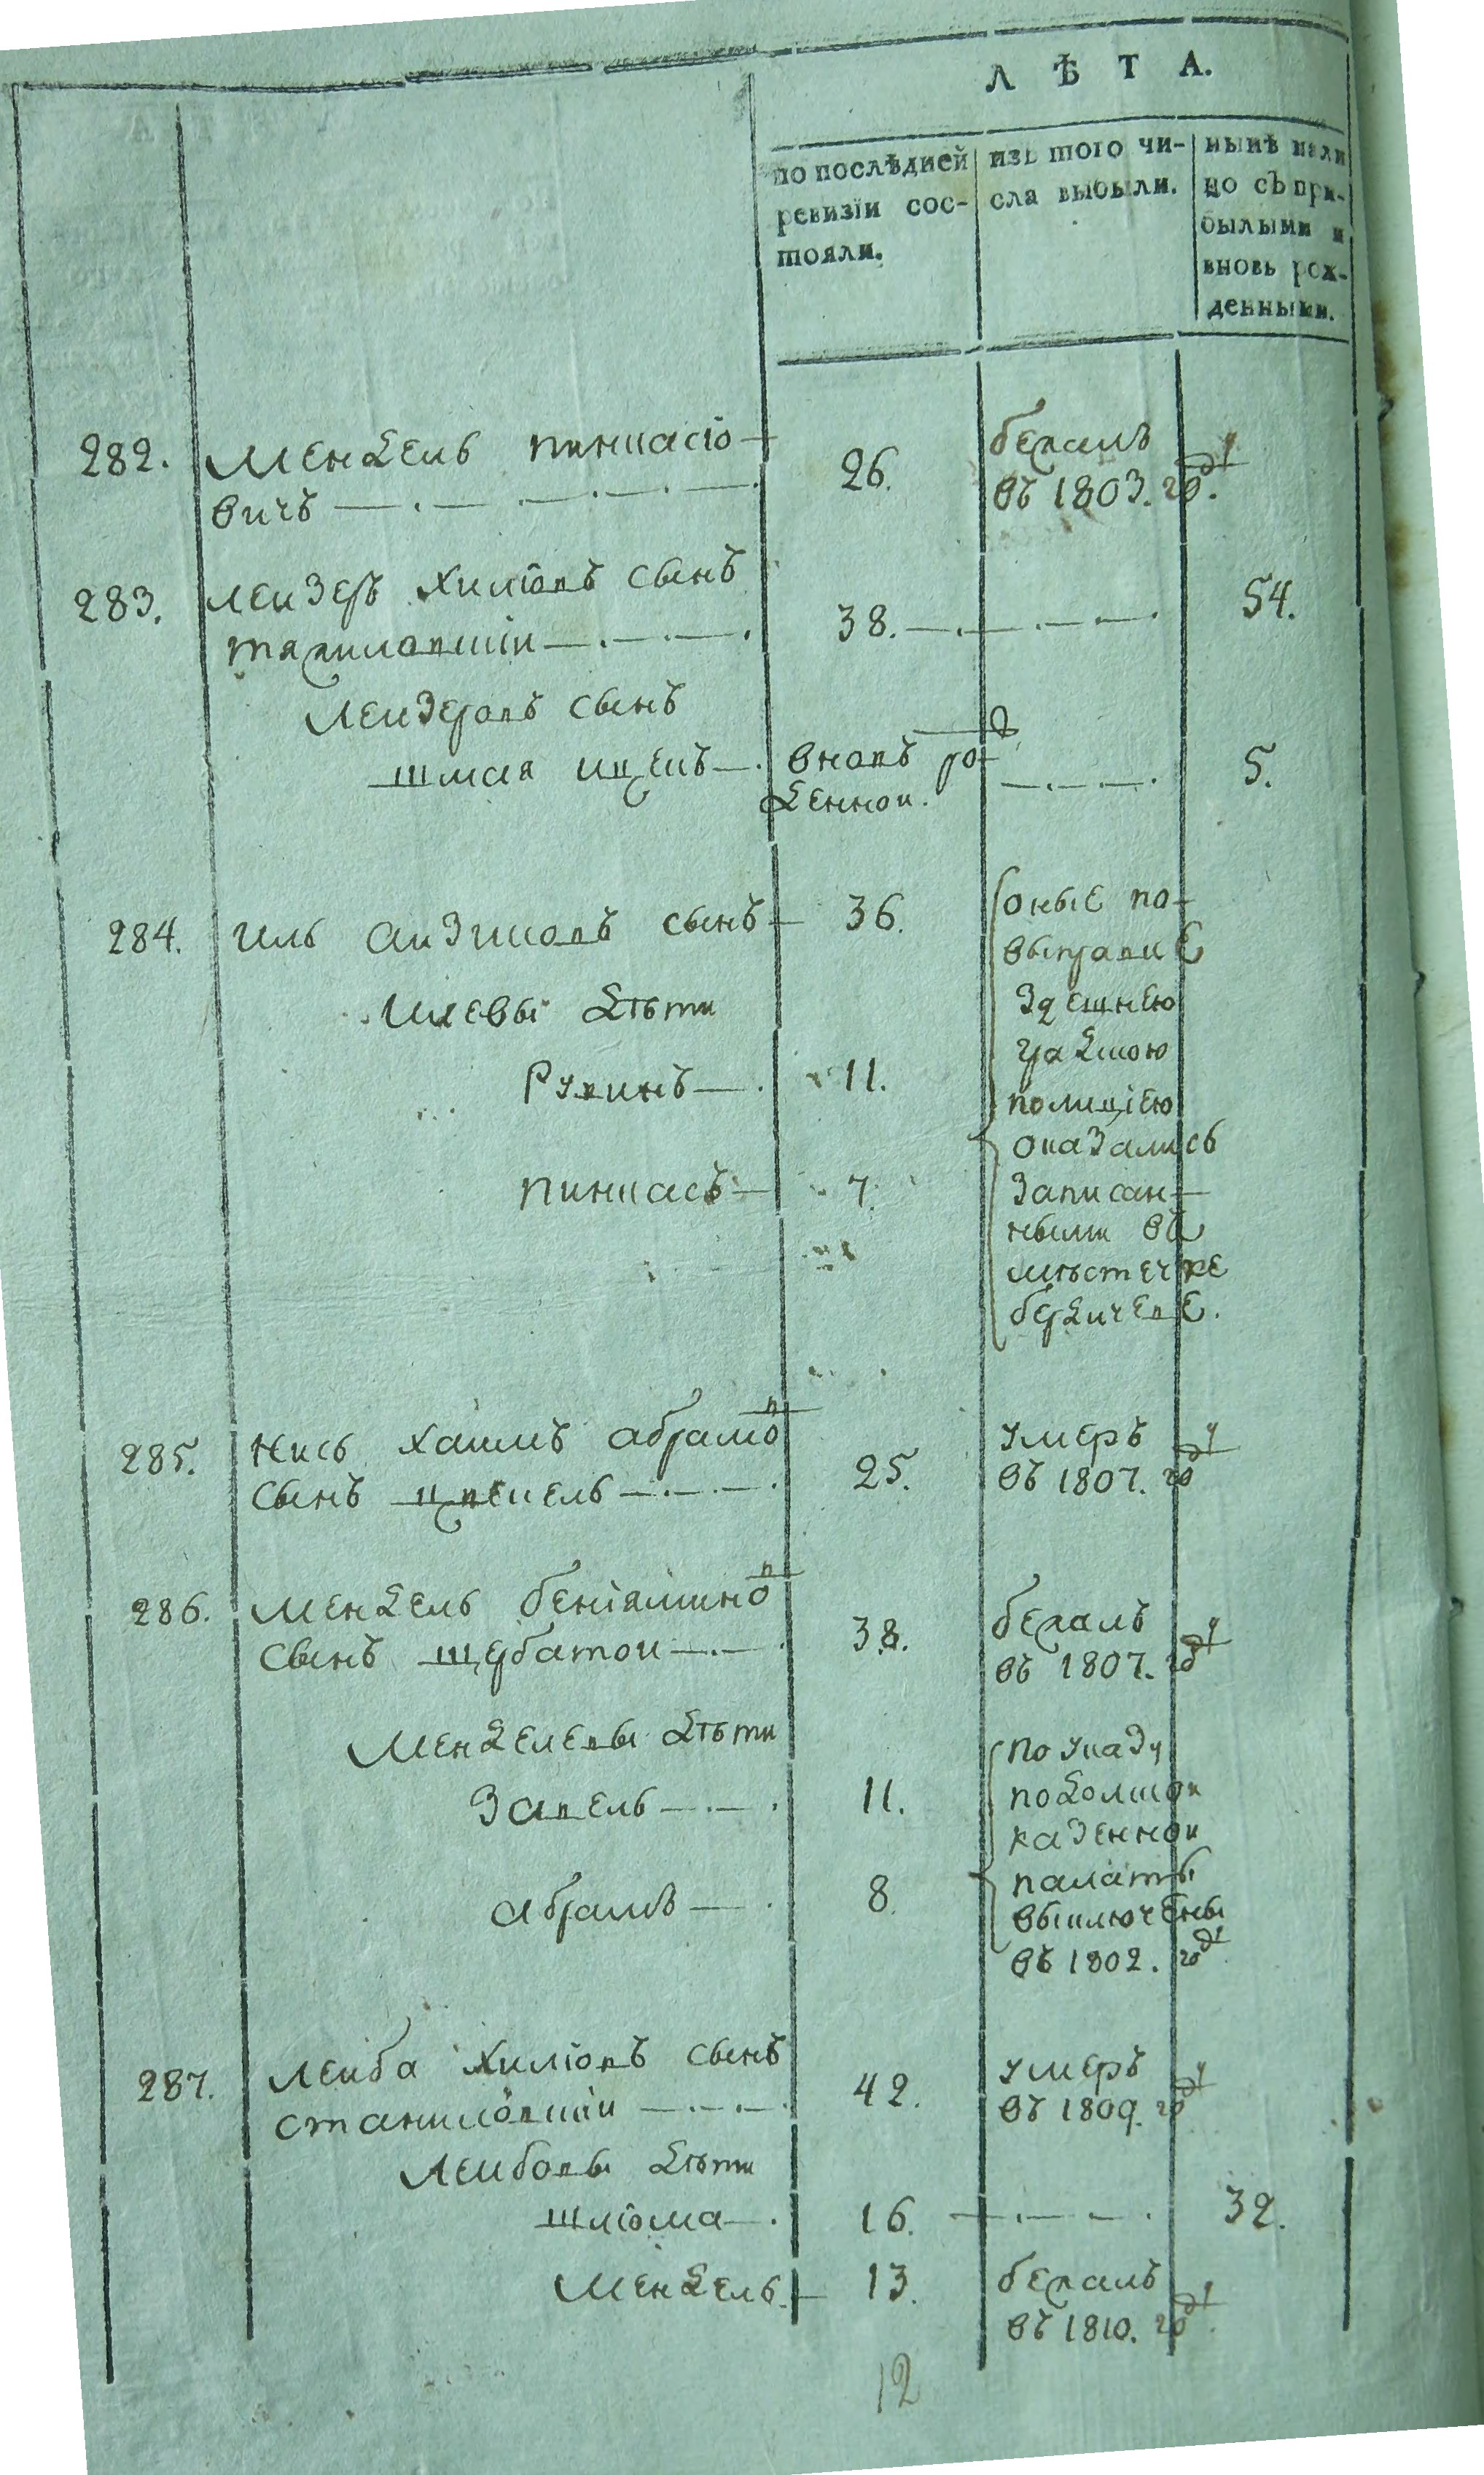 ЛѢТА.
по послѣдней
ревизїи сос-
тояли.
изъ того чи-
сла выбыли.
нынѣ нали
цо съ при-
былыми и
вновь рож-
денными.
282. Мендель пинкасїо
вичъ 26. бежалъ
въ 1803. году.
283. Лейзеръ Хилїовъ сынъ
38. 54.
Лейзеровъ сынъ
шмая ицекъ вновь ро
жденной. 5.
284. Иль айзиковъ сынъ 36.
Илевы дѣти
Рувинъ 11.
пинкасъ 7.
оные по
выправке
здешнею
градскою
полицїею
оказались
записан
ными въ
мѣстечке
бердичеве.
285. Кись Хаимъ абрамов
сынъ цвейгель 25. умеръ
въ 1807. году
286. Мендель бенїяминов
сынъ щербатой 38. бежалъ
въ 1807. году
Менделевы дѣти
Завель 11.
абрамъ 8
по указу
подолской
казенной
палаты
выключены
въ 1802. году
287. Лейба Хилїовъ сынъ
станиловскїй 42. умеръ
въ 1809. году
Лейбовы дѣти
шлїома 16. 32.
Мендель 13. бежалъ
въ 1810. году
12